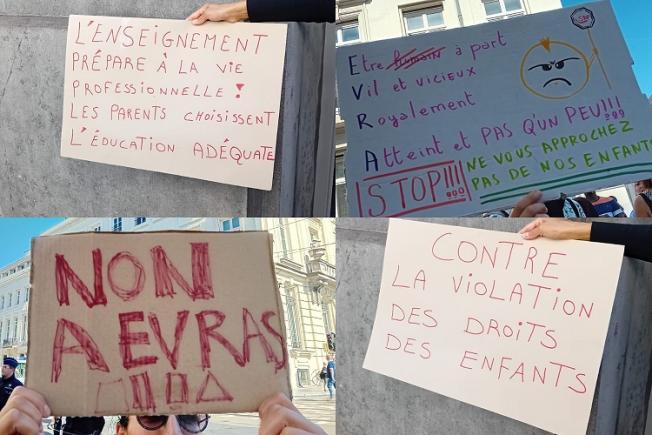 L'ENSEIGNEMENT
PRÉPARE À LA VIE
PROFESSIONNELLE !
LES PARENTS CHOISISSENT
L'ÉDUCATION ADÉQUATE
STOP
Etre humain à part
Vil et vicieux
Royalement
Atteint et PAS QU'UN PEU!!!
STOP!!!!
NE VOUS APPROCHEZ
PAS DE NOS ENFANTS
NON
A EVRAS
!!!!
CONTRE
LA VIOLATION
DES DROITS
DES ENFANTS